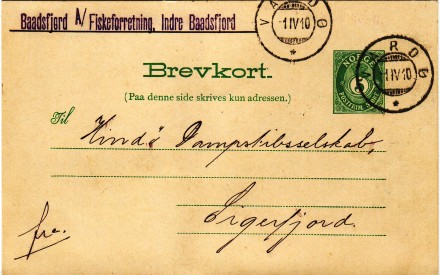 Baadsfjord A/ Fiskeforretning, Indre Baadsfjord
VARDØ
1 IV 10
VARDØ
1 IV 10
NORGE
5
Brevkort.
(Paa denne side skrives kun adressen.)
Til
Dampskibsselskab,
Sigerfjord.
fra.